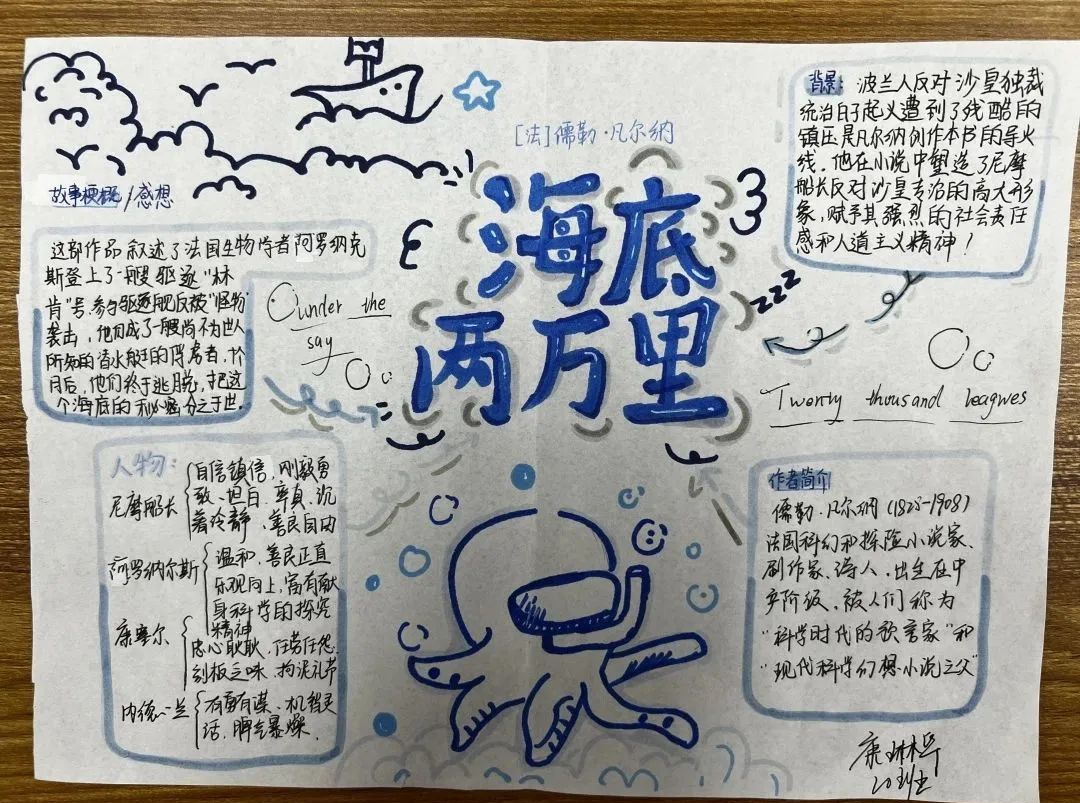 [法]儒勒·凡尔纳
海底
两万里
故事梗概/感想
这部作品叙述了法国生物学者阿罗纳克
斯登上了一艘驱逐"林
肯"号.参与驱逐舰反被"怪物"
袭击,他们成了一艘尚不为世人
所知的潜水艇的俘虏者,个
月后,他们终于逃脱,把这
个海底的秘密公之于世.
under the
say
背景:波兰人反对沙皇独裁
统治的起义遭到了残酷的
镇压是凡尔纳创作本书的导火
线.他在小说中塑造了尼摩
船长反对沙皇专治的高大形
象,赋予其强烈的社会责任
感和人道主义精神!
zzz
Twenty thousand leagues
人物:
尼摩船长
自信镇信,刚毅勇
敢、坦白、率真、沉
着冷静、善良自由
阿罗纳尔斯
温和、善良正直
乐观向上,富有献
身科学的探究
精神
康塞尔
忠心耿耿、任劳任怨
刻板乏味、拘泥礼节
内德·兰
有勇有谋、机智灵
活,脾气暴燥.
作者简介
儒勒·凡尔纳(1828-1908)
法国科幻和探险小说家、
剧作家、诗人.出生在中
产阶级,被人们称为
"科学时代的预言家"和
"现代科学幻想小说之父"
康琳
20班